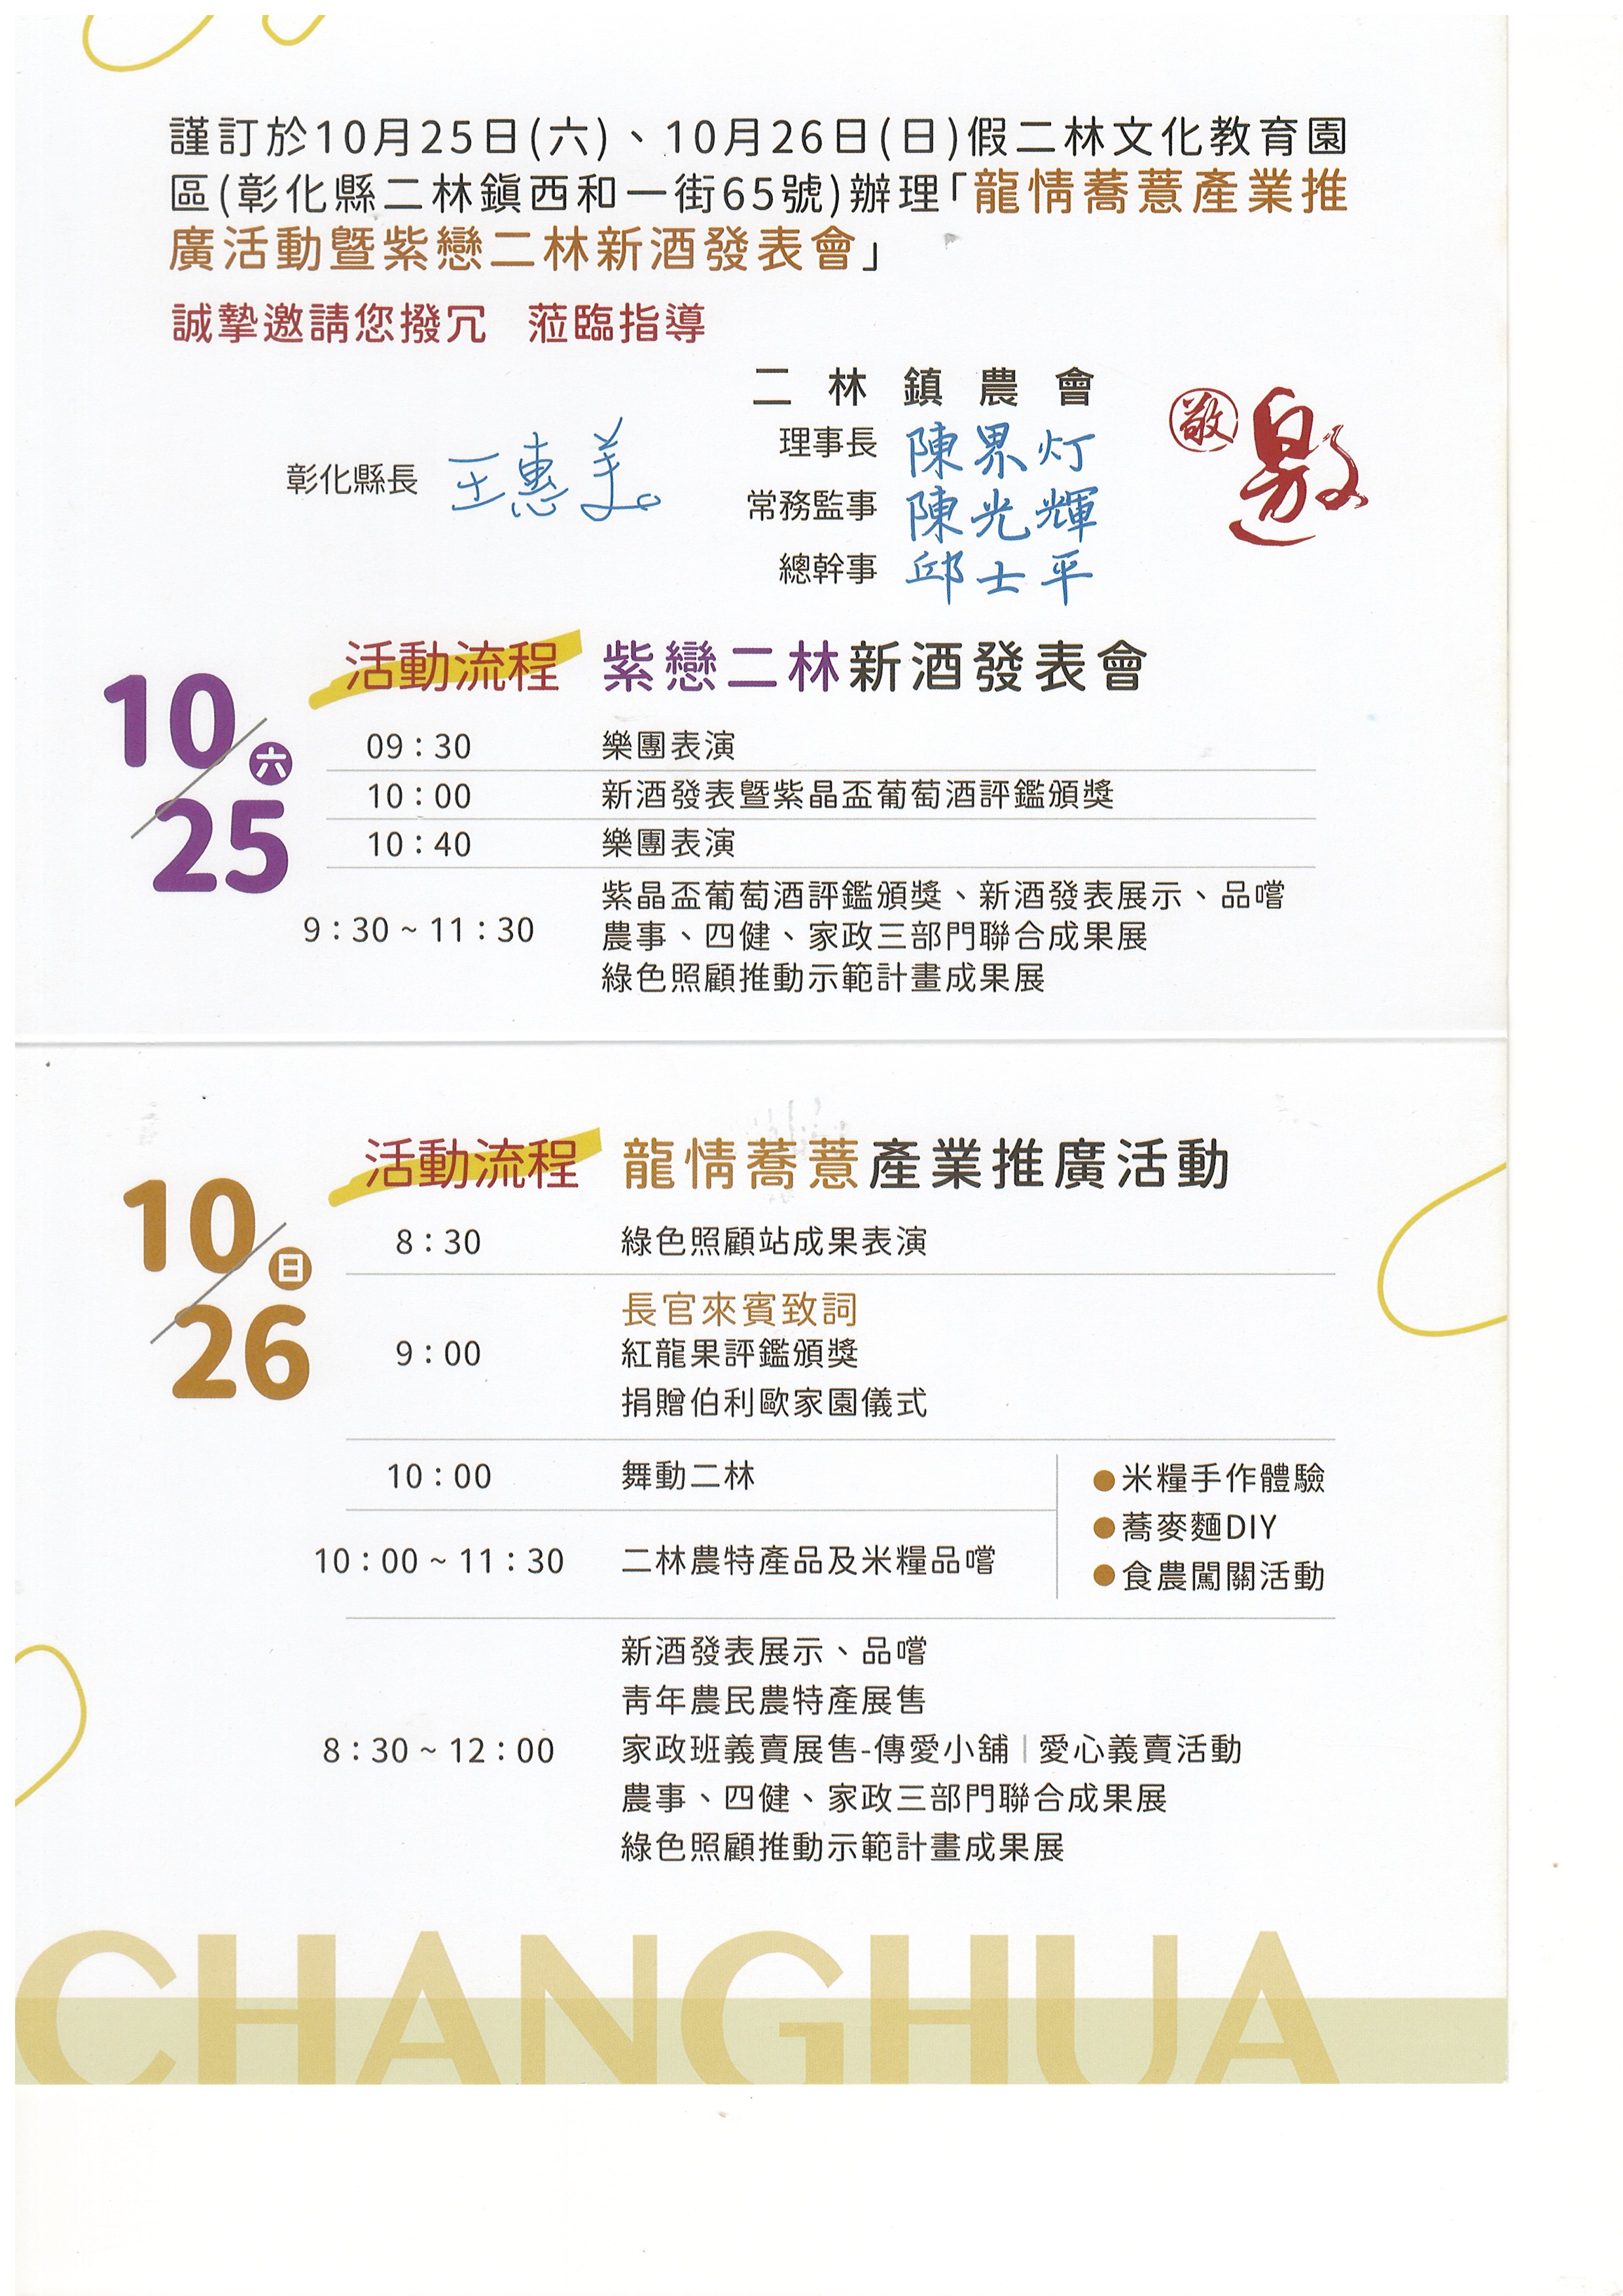 謹訂於10月25日(六)、10月26日(日)假二林文化教育園
區(彰化縣二林鎮西和一街65號)辦理「龍情蕎薏產業推
廣活動暨紫戀二林新酒發表會」
誠摯邀請您撥冗 蒞臨指導
二林鎮農會
彰化縣長 王惠美
理事長 陳界灯
常務監事 陳光輝
總幹事 邱士平
敬邀
10/25 六
活動流程 紫戀二林新酒發表會
09:30 樂團表演
10:00 新酒發表暨紫晶盃葡萄酒評鑑頒獎
10:40 樂團表演
9:30~11:30 紫晶盃葡萄酒評鑑頒獎、新酒發表展示、品嚐
農事、四健、家政三部門聯合成果展
綠色照顧推動示範計畫成果展
10/26 日
活動流程 龍情蕎薏產業推廣活動
8:30 綠色照顧站成果表演
9:00 長官來賓致詞
紅龍果評鑑頒獎
捐贈伯利歐家園儀式
10:00 舞動二林
10:00~11:30 二林農特產品及米糧品嚐
●米糧手作體驗
●蕎麥麵DIY
●食農闖關活動
8:30~12:00 新酒發表展示、品嚐
青年農民農特產展售
家政班義賣展售-傳愛小舖|愛心義賣活動
農事、四健、家政三部門聯合成果展
綠色照顧推動示範計畫成果展
CHANGHUA